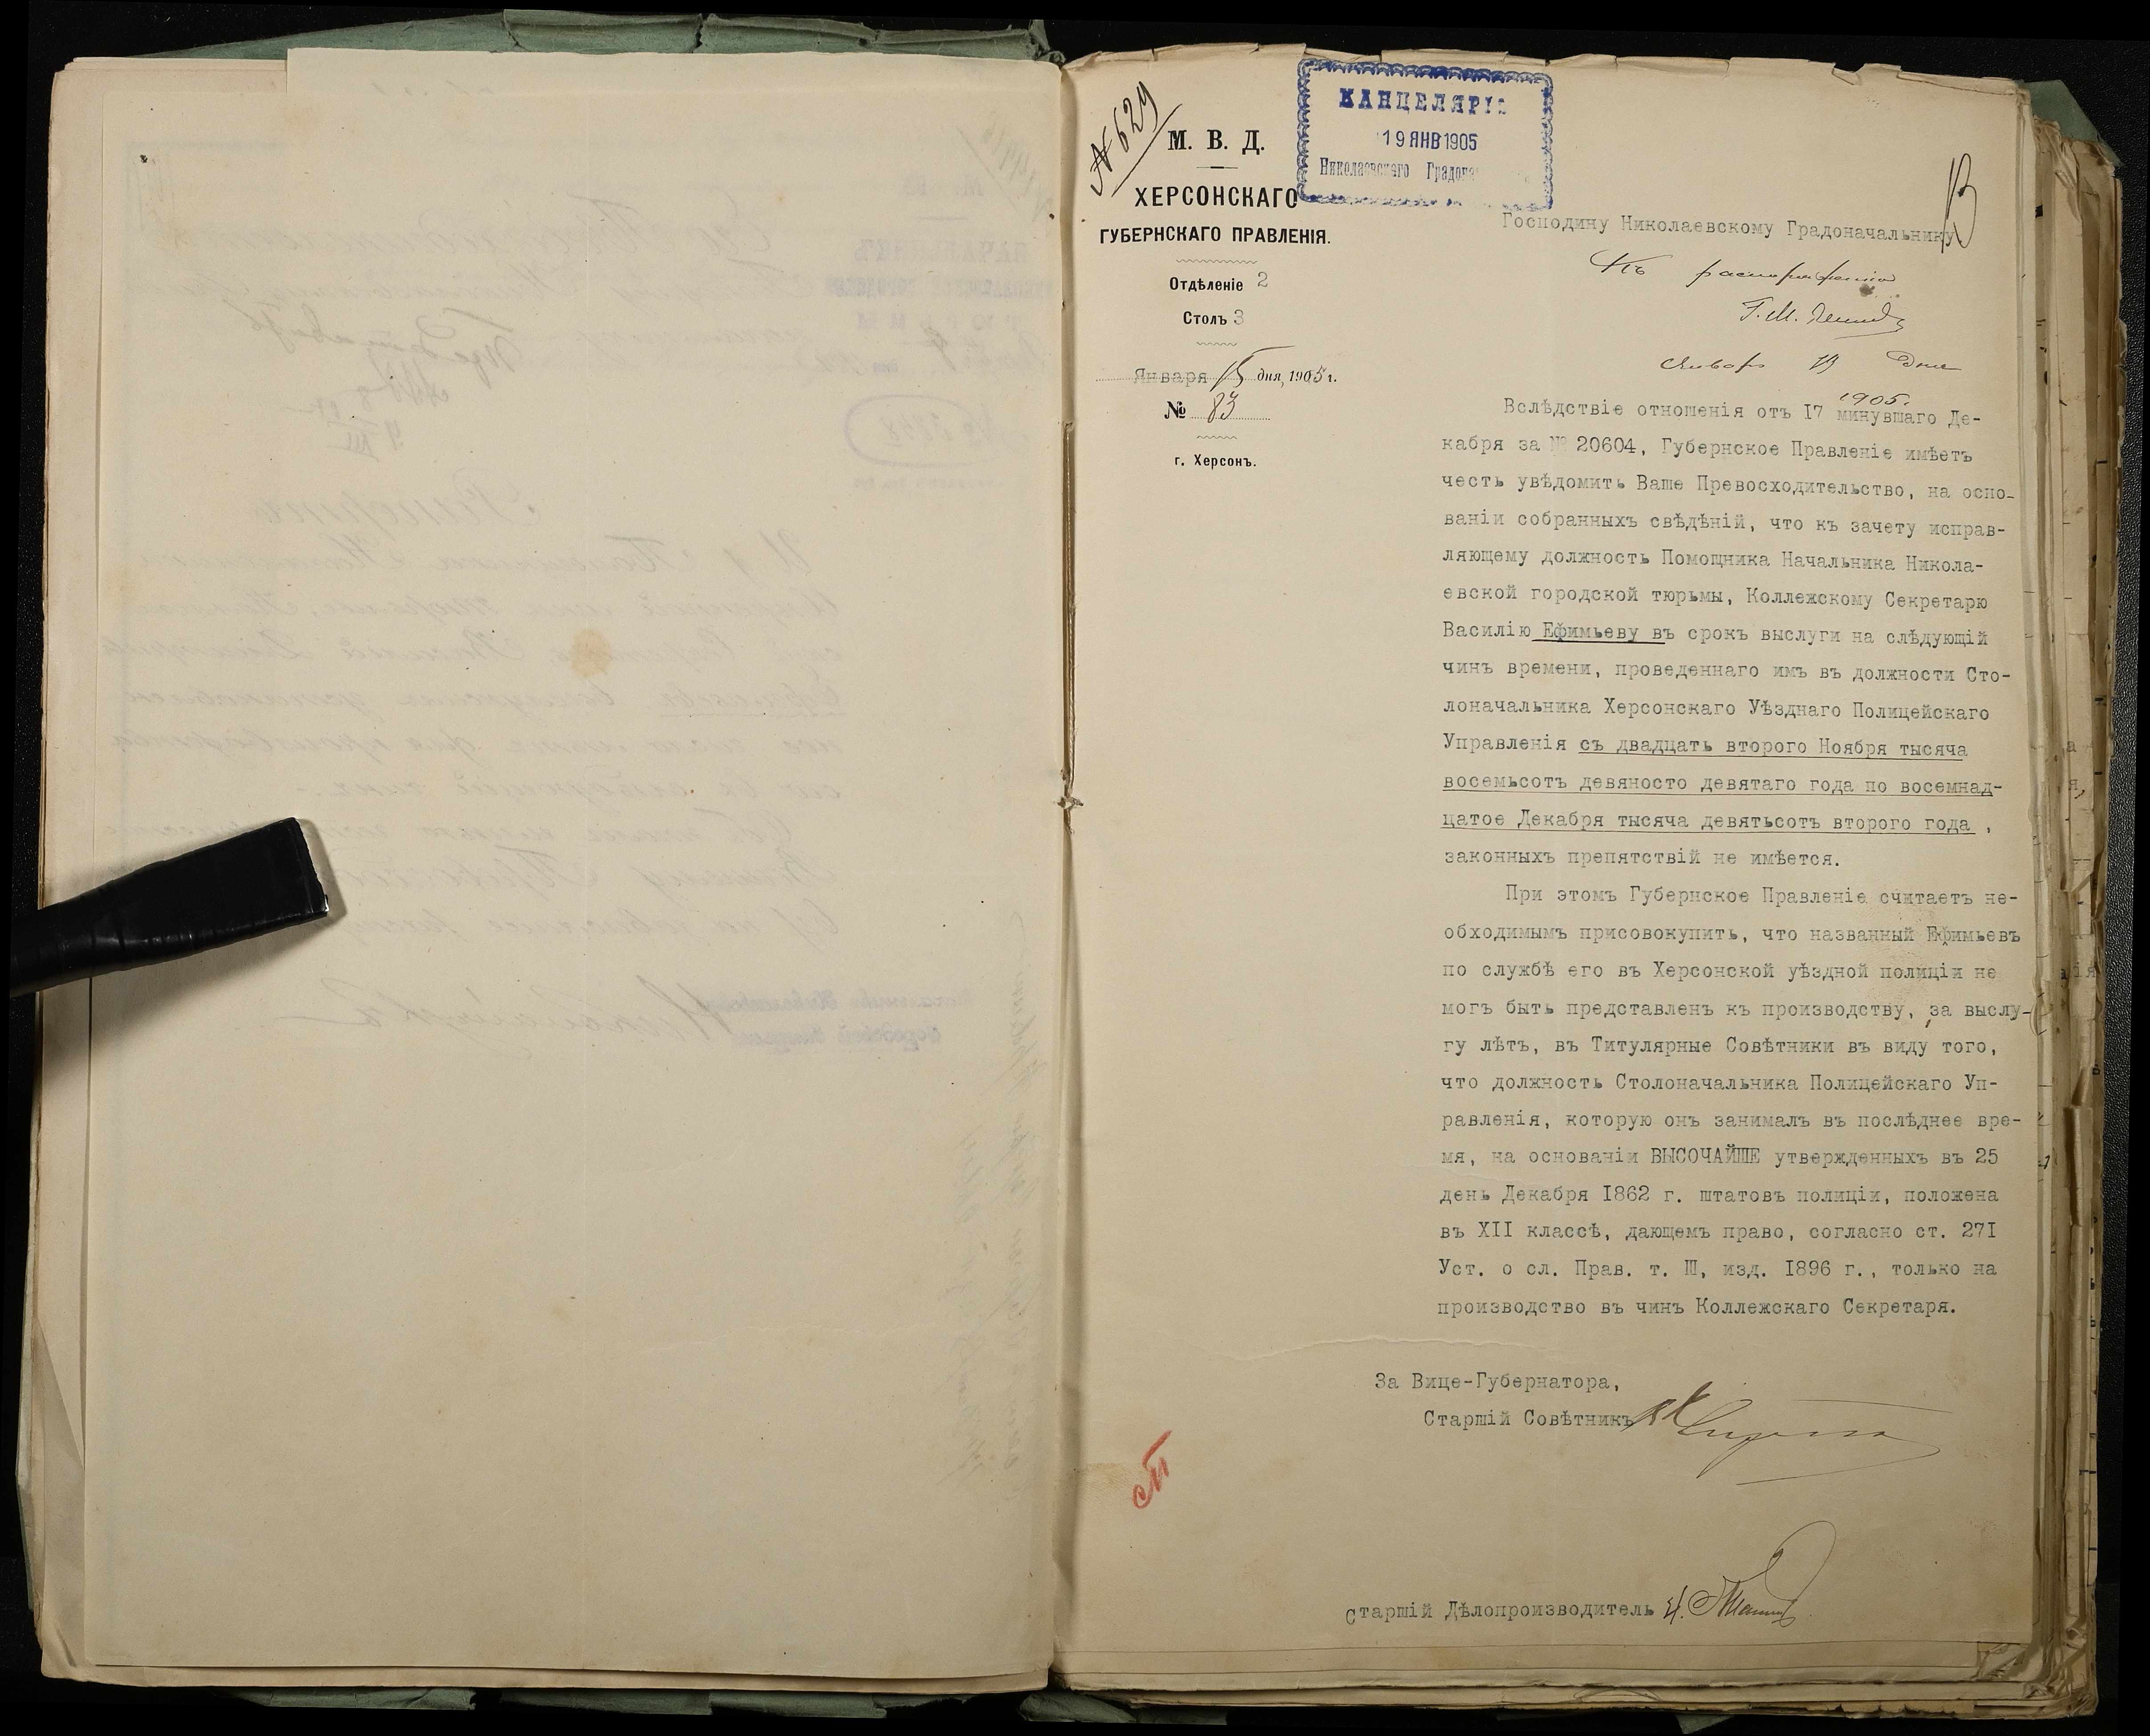 № 629
М. В. Д.
ХЕРСОНСКАГО
ГУБЕРНСКАГО ПРАВЛЕНІЯ.
Отдѣленіе 2
Столъ 3
Января 15 дня, 1905 г.
№ 83
г. Херсонъ.
КАНЦЕЛЯРІ
19 ЯНВ 1905
Николаевскаго Градона
Господину Николаевскому Градоначальнику
Къ
Январь дня
1905.
Вслѣдствіе отношенія отъ I7 минувшаго Де-
кабря за № 20604, Губернское Правленіе имѣетъ
честь увѣдомить Ваше Превосходительство, на осно-
ваніи собранныхъ свѣдѣній, что къ зачету исправ-
ляющему должность Помощника Начальника Никола-
евской городской тюрьмы, Коллежскому Секретарю
Василію Ефимьеву въ срокъ выслуги на слѣдующій
чинъ времени, проведеннаго имъ въ должности Сто-
лоначальника Херсонскаго Уѣзднаго Полицейскаго
Управленія съ двадцать второго Ноября тысяча
восемьсотъ девяносто девятаго года по восемнад-
цатое Декабря тысяча девятьсотъ второго года ,
законныхъ препятствій не имѣется.
При этомъ Губернское Правленіе считаетъ не-
обходимымъ присовокупить, что названный Ефимьевъ
по службѣ его въ Херсонской уѣздной полиціи не
могъ быть представленъ къ производству, за выслу-
гу лѣтъ, въ Титулярные Совѣтники въ виду того,
что должность Столоначальника Полицейскаго Уп-
равленія, которую онъ занималъ въ послѣднее вре-
мя, на основаніи ВЫСОЧАЙШЕ утвержденныхъ въ 25
день Декабря I862 г. штатовъ полиціи, положена
въ XII классѣ, дающемъ право, согласно ст. 27I
Уст. о сл. Прав. т. Ш, изд. I896 г., только на
производство въ чинъ Коллежскаго Секретаря.
За Вице-Губернатора,
Старшій Совѣтникъ
Старшій Дѣлопроизводитель